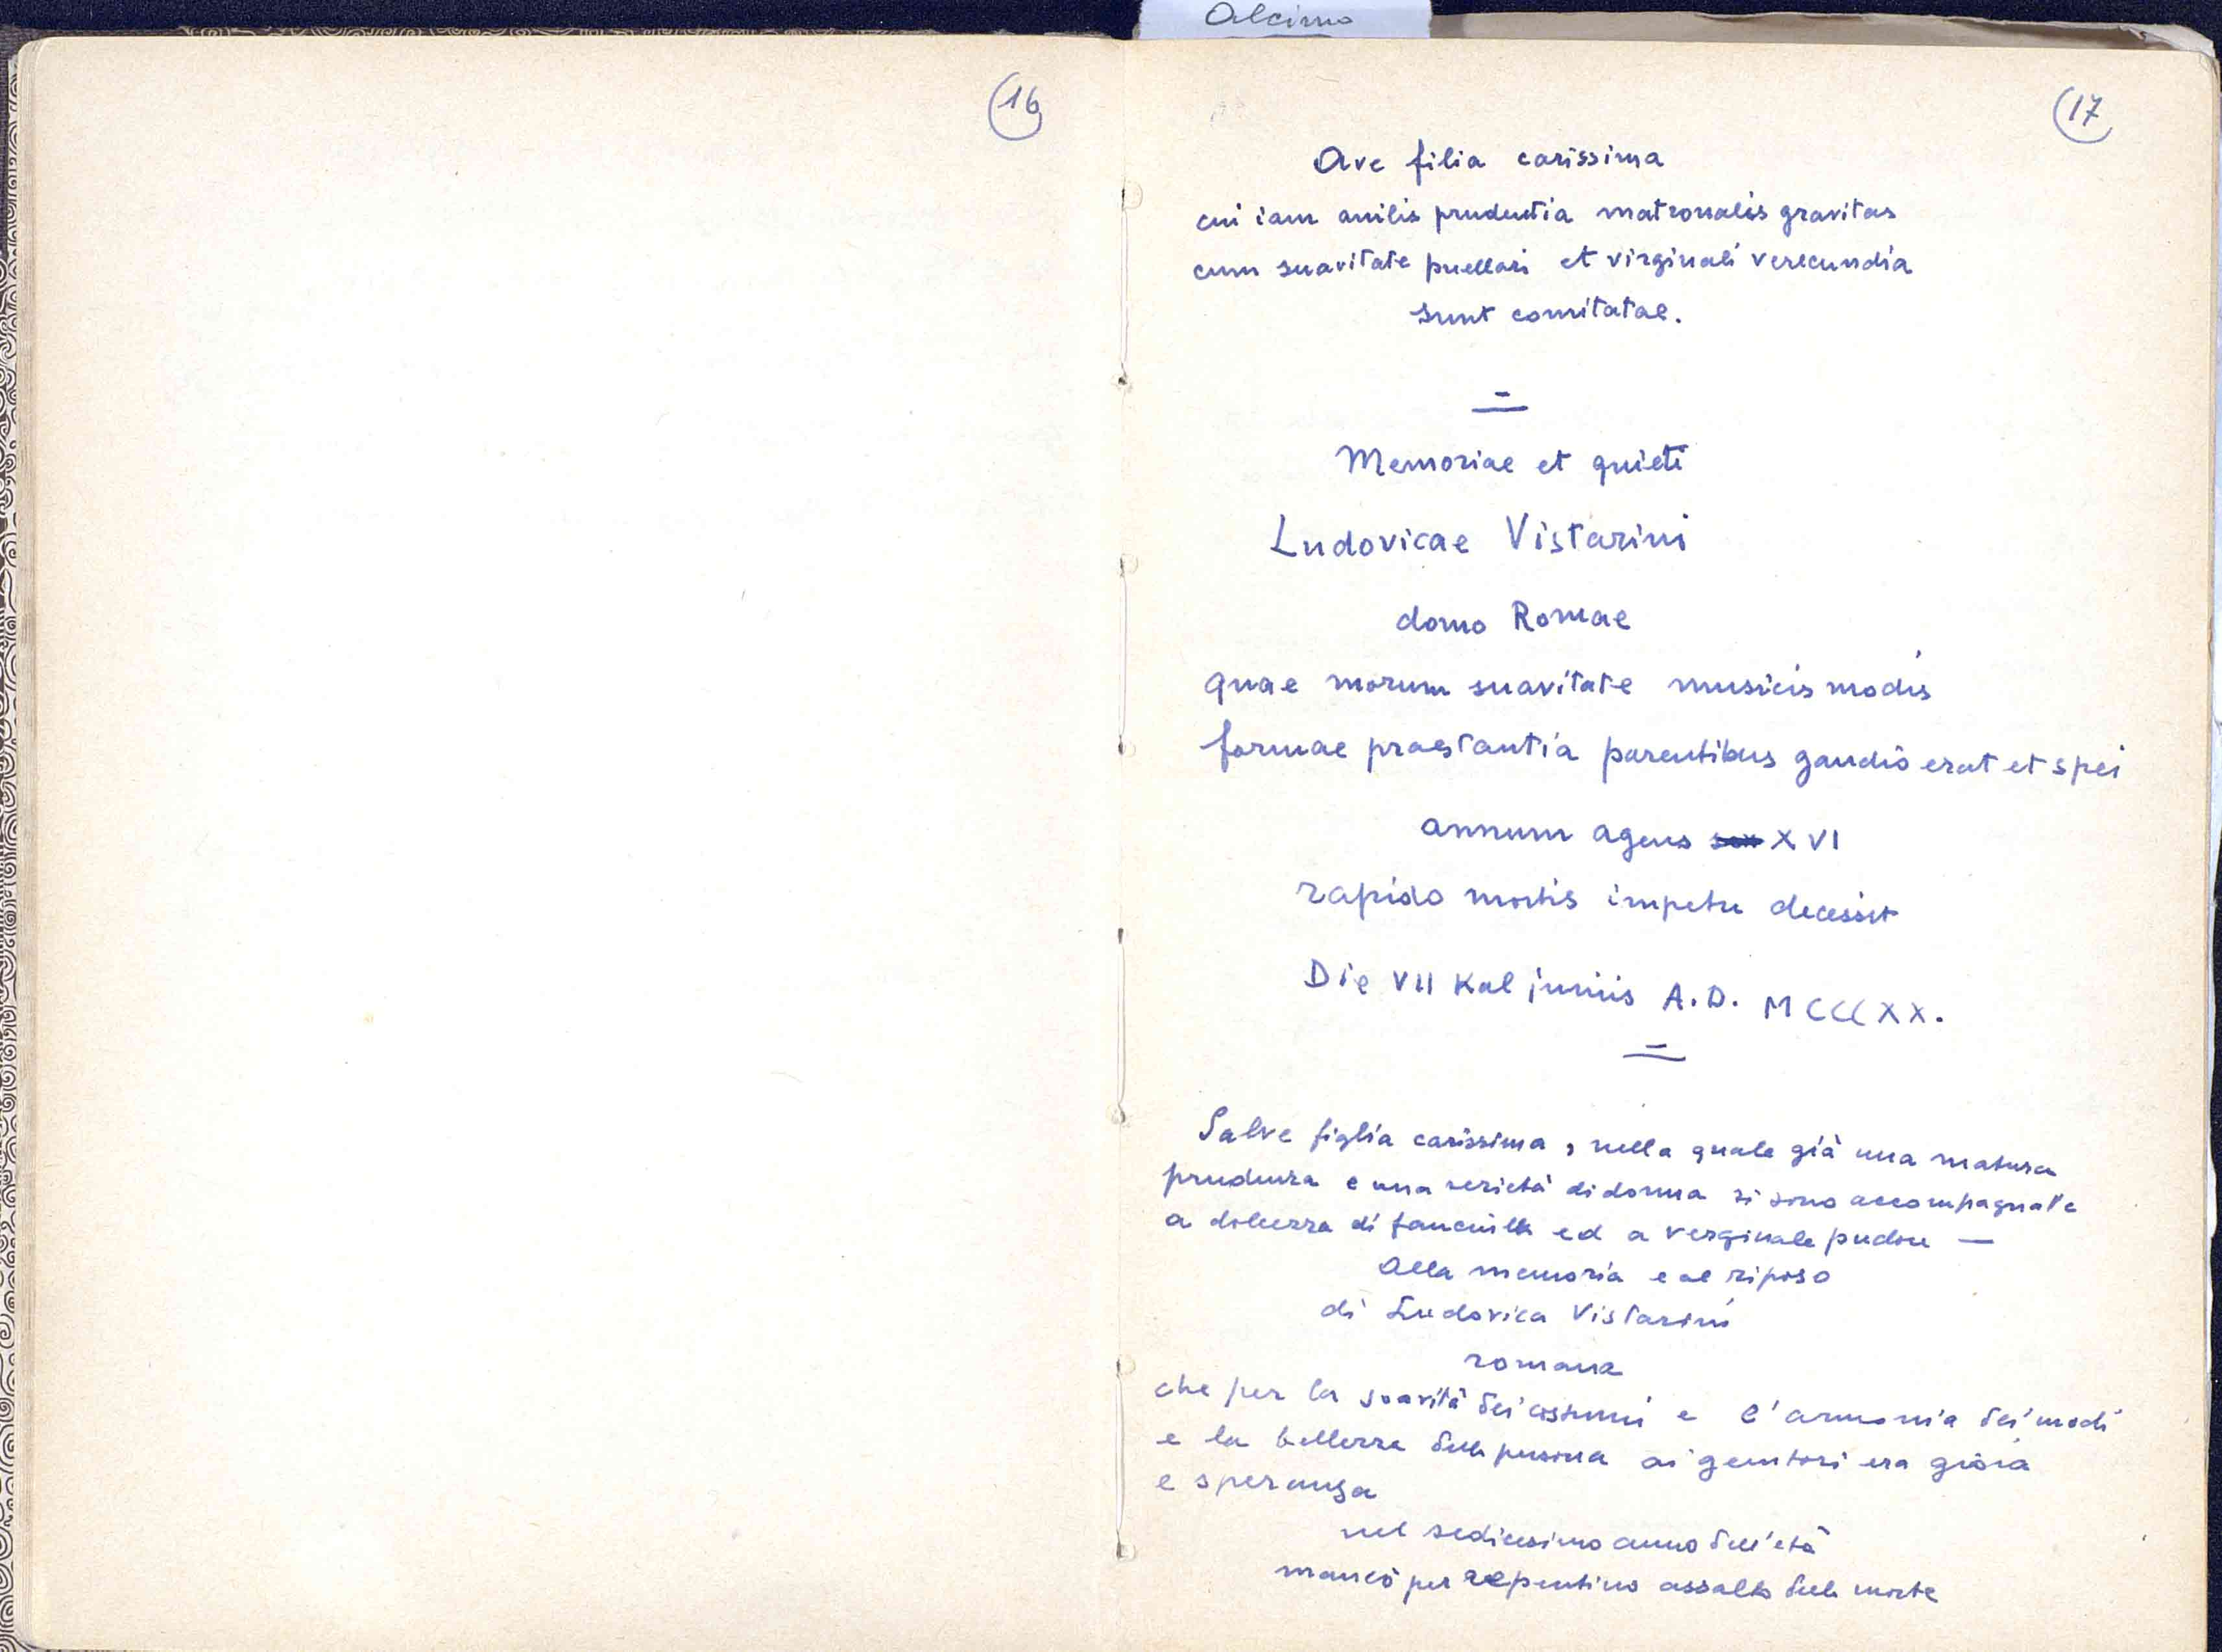 Alcimo
16
17
Ave filia carissima
cui iam anilis prudentia matronalis gravitas
cum suavitate puellari et virginali verecundia
sunt comitatae.
Memoriae et quieti
Ludovicae Vistarini
domo Romae
quae morum suavitate musicis modis
formae praestantia parentibus gaudio erat et spei
annum agens XVI
rapido mortis impetu decessit
Die VII Kal juniis A.D. MCCCXX.
Salve figlia carissima, nella quale già una matura
prudenza e una serietà di donna si sono accompagnate
a dolcezza di fanciulla ed a verginale pudore —
Alla memoria e al riposo
di Ludovica Vistarini
romana
che per la soavità dei costumi e l'armonia dei modi
e la bellezza della persona ai genitori era gioia
e speranza
nel sedicesimo anno dell'età
mancò per repentino assalto della morte